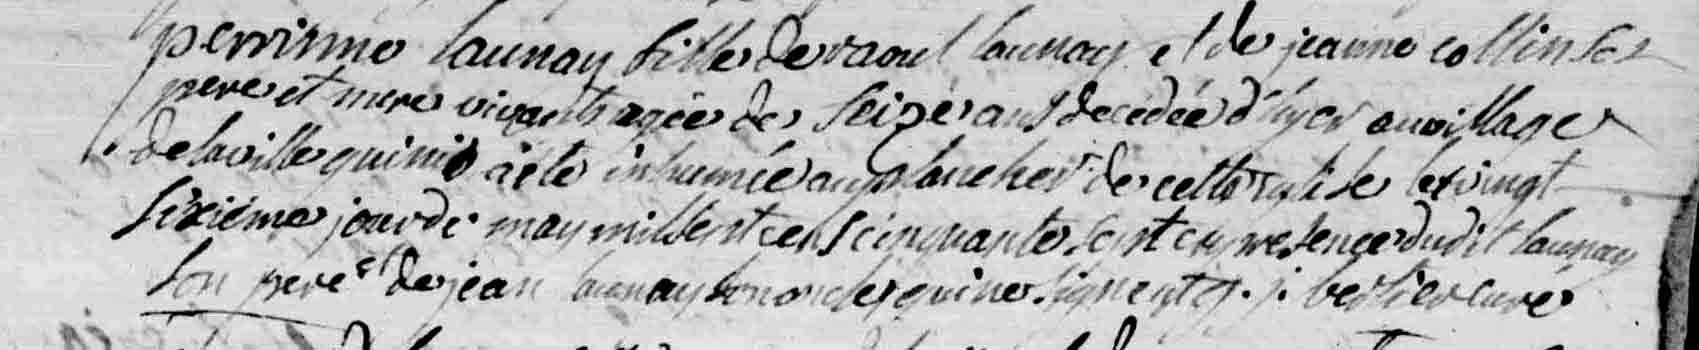 perrinne launay fille de raoul launay et de jeanne collin ses
pere et mere vivants agée de seize ans decedée d'hyer au village
de la ville quinio a ete inhumée au plancher de cette eglise le vingt
sixième jour de may mil sept cens cinquante sept en presence dudit launay
son pere et de jean launay son oncle qui ne signent